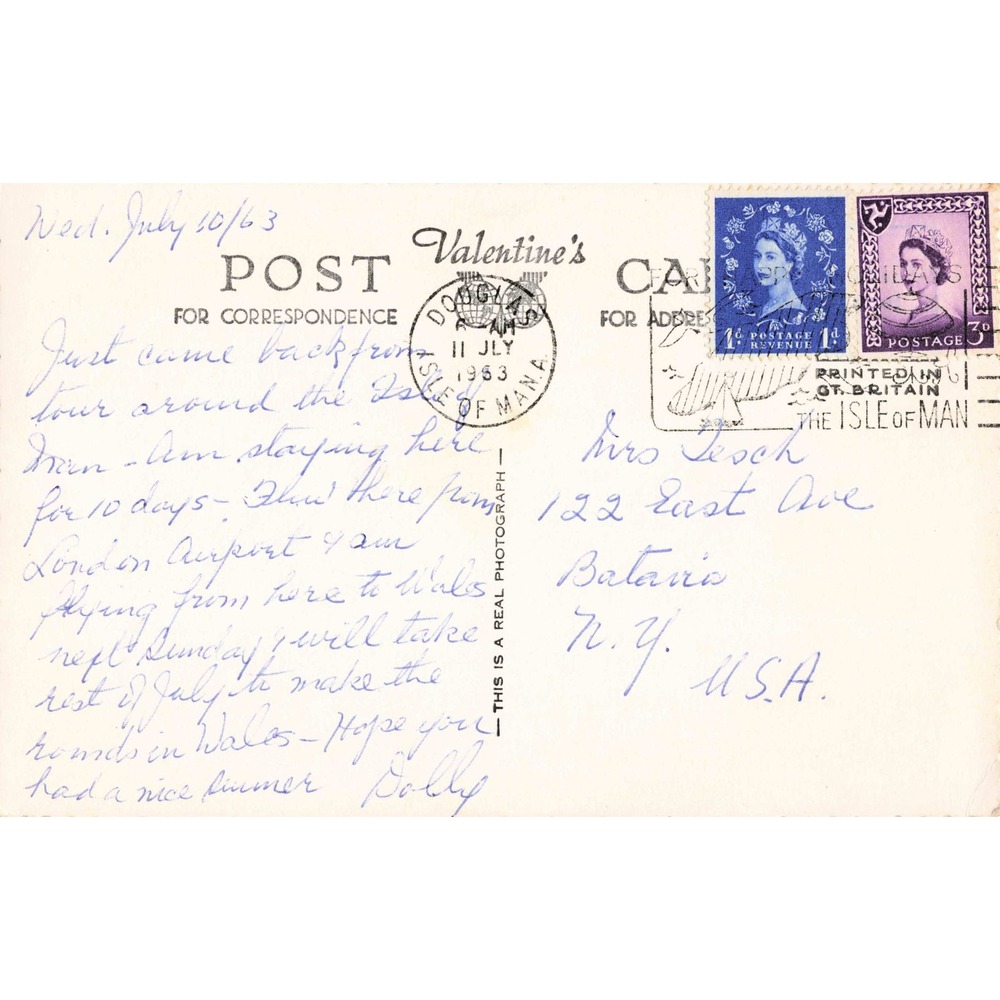 Wed. July 10/63
Valentine's
POST CA
FOR CORRESPONDENCE
FOR ADDRE
Just came back from
tour around the Isle of
Man - Am staying here
for 10 days - Flew there from
London Airport & am
flying from here to Wales
next Sunday & will take
rest of July to make the
rounds in Wales - Hope you
had a nice summer Dolly
DOUGLAS
AM
11 JLY
1963
ISLE OF MAN A
— THIS IS A REAL PHOTOGRAPH —
FOR HAPPY HOLIDAYS
THE ISLE OF MAN
1D 1D
POSTAGE
REVENUE
POSTAGE 3D
PRINTED IN
GT. BRITAIN
Mrs Tesch
122 East Ave
Batavia
N.Y.
U.S.A.